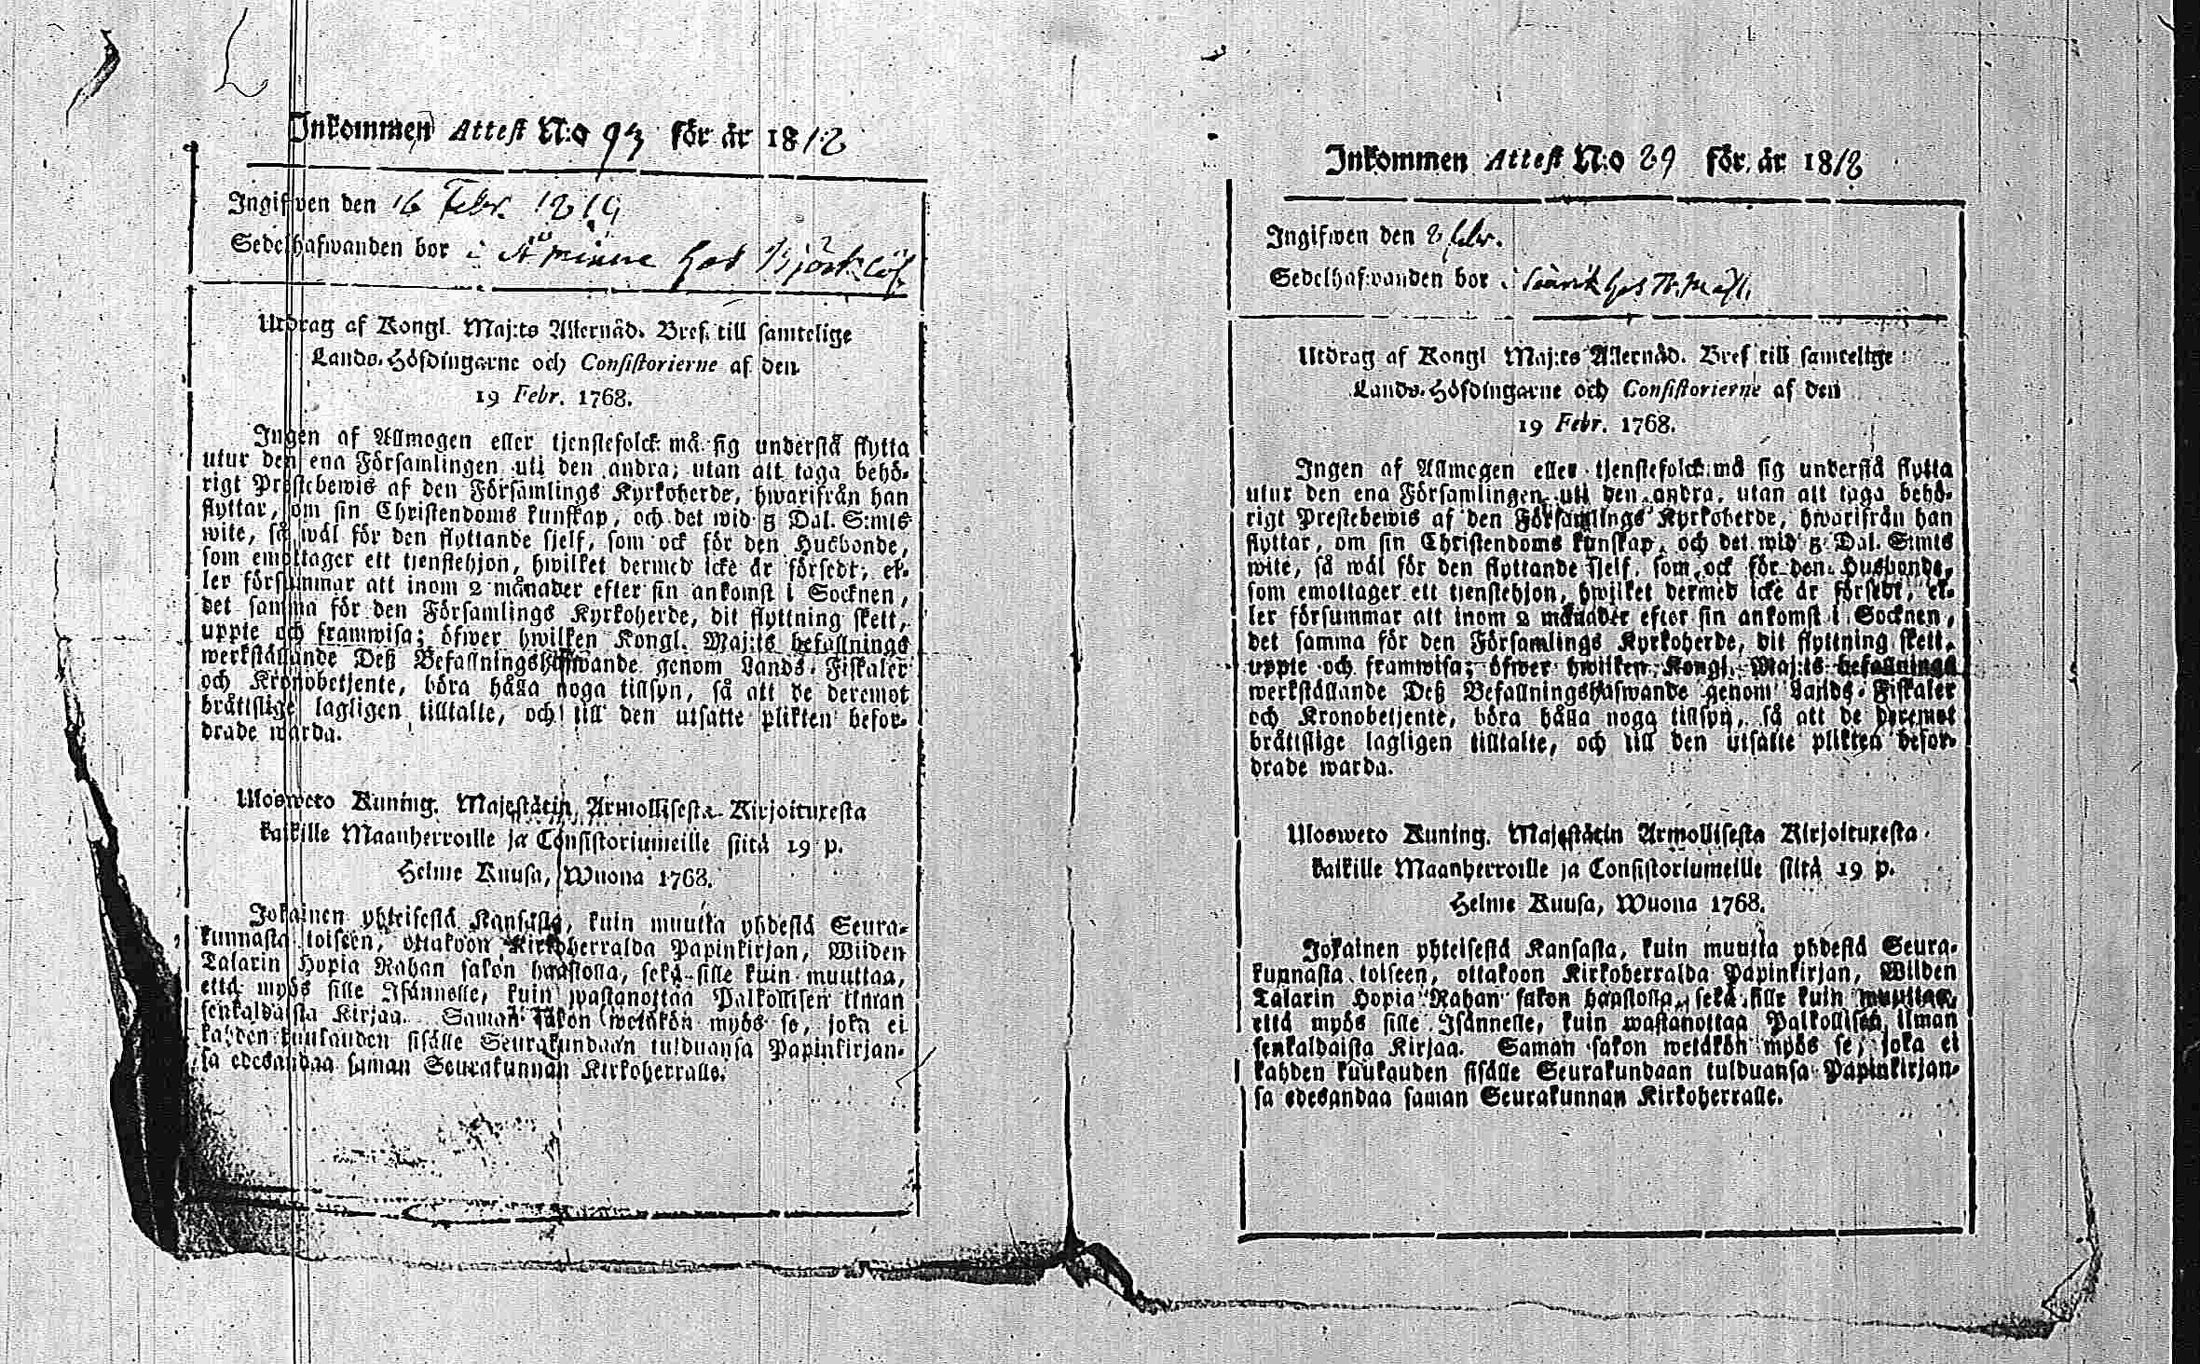 Inkommen Attest N:o 93 för år 1812
Ingifwen den 16 Febr. 1819
Sedelhafwanden bor i Åminne hos Björklöf
Utdrag af Kongl. Maj:ts Allernåd. Bref till samtelige
Lands-Höfdingarne och Consistorierne af den
19 Febr. 1768.
Ingen af Allmogen eller tjenstefolck må sig understå flytta
utur den ena Församlingen uti den andra, utan att taga behö-
rigt Prestebewis af den Församlings Kyrkoherde, hwarifrån han
flyttar, om sin Christendoms kunskap, och det wid 5 Dal. S:mts
wite, så wäl för den flyttande sjelf, som ock för den Husbonde,
som emottager ett tjenstehjon, hwilket dermed icke är försedt; el-
ler försummar att inom 2 månader efter sin ankomst i Socknen,
det samma för den Församlings Kyrkoherde, dit flyttning skett,
uppte och framwisa; öfwer hwilken Kongl. Maj:ts befallnings
werkställande Deß Befallningshafwande genom Lands-Fiskaler
och Kronobetjente, böra hålla noga tillsyn, så att de deremot
bråttslige lagligen tilltalte, och till den utsatte plikten befor-
drade warda.
Ulosweto Kuning. Majestätin Armollisesta Kirjoituxesta
kaikille Maanherroille ja Consistoriumeille siitä 19 p.
Helme Kuusa, Wuona 1768.
Jokainen yhteisestä Kansasta, kuin muutta yhdestä Seura-
kunnasta toiseen, ottakoon Kirkoherralda Papinkirjan, Wiiden
Talarin Hopia Rahan sakon haastolla, sekä sille kuin muuttaa,
että myös sille Isännelle, kuin wastanottaa Palkollisen ilman
senkaldaista Kirjaa. Saman sakon wetäkön myös se, joka ei
kahden kuukauden sisälle Seurakundaan tulduansa Papinkirjan-
sa edesandaa saman Seurakunnan Kirkoherralle.
Inkommen Attest N:o 29 för år 1812
Ingifwen den 2 febr.
Sedelhafwanden bor i hos
Utdrag af Kongl Maj:ts Allernåd. Bref till samtelige
Lands-Höfdingarne och Consistorierne af den
19 Febr. 1768.
Ingen af Allmogen eller tjenstefolck må sig understå flytta
utur den ena Församlingen uti den andra, utan att taga behö-
rigt Prestebewis af den Församlings Kyrkoherde, hwarifrån han
flyttar, om sin Christendoms kunskap, och det wid 5 Dal. S:mts
wite, så wäl för den flyttande sjelf, som ock för den Husbonde,
som emottager ett tienstehjon, hwilket dermed icke är försedt, el-
ler försummar att inom 2 månader efter sin ankomst i Socknen,
det samma för den Församlings Kyrkoherde, dit flyttning skett,
uppte och framwisa; öfwer hwilken Kongl. Maj:ts befallnings
werkställande Deß Befallningshafwande genom Lands-Fiskaler
och Kronobetjente, böra hålla noga tillsyn, så att de deremot
bråttslige lagligen tilltalte, och till den utsatte plikten befor-
drade warda.
Ulosweto Kuning. Majestätin Armollisesta Kirjoituxesta
kaikille Maanherroille ja Consistoriumeille siitä 19 p.
Helme Kuusa, Wuona 1768.
Jokainen yhteisestä Kansasta, kuin muutta yhdestä Seura-
kunnasta toiseen, ottakoon Kirkoherralda Papinkirjan, Wiiden
Talarin Hopia Rahan sakon haastolla, sekä sille kuin muuttaa,
että myös sille Isännelle, kuin wastanottaa Palkollisen ilman
senkaldaista Kirjaa. Saman sakon wetäkön myös se, joka ei
kahden kuukauden sisälle Seurakundaan tulduansa Papinkirjan-
sa edesandaa saman Seurakunnan Kirkoherralle.